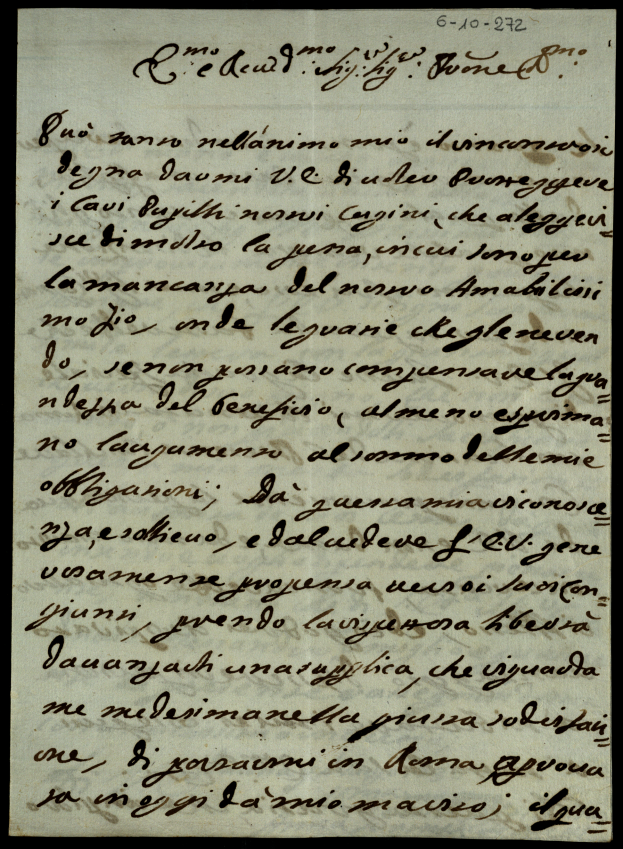 6-10-272
E.mo e Reud.mo Sig.r Sig.r P̃rone C.mo
Può tanto nell'animo mio il vin consuosi
degna darmi V.E. di uoler Proteggere
i Cari Pupilli nostri Cugini, che aleggeri=
sce di molto la pena, in cui sono per
la mancanza del nostro Amabilissi
mo Zio, onde le grazie che gle ne ren
do, se non possano compensare la gra=
ndezza del beneficio, almeno esprima=
no l'argumento al sommo delle mie
obbligazioni; Dà questa mia riconosce=
nza, e sollieuo, e dal uedere l'E.V. gene
rosamente propensa uerso i suoi Con=
giunti, prendo la rispettosa libertà
d'auanzarli una supplica, che riguarda
me medesima nella giusta sodisfazi=
one, di portarmi in Roma
in oggi da mio marito; il qua=